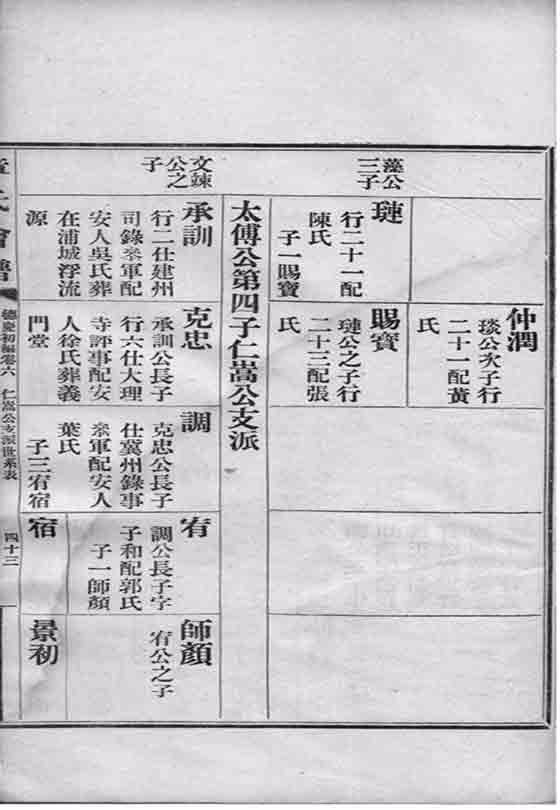 藻公
三子
璉
行二十一配
陳氏
子一賜寶
仲潤
琰公次子行
二十一配黃
氏
賜寶
璉公之子行
二十三配張
氏
太傅公第四子仁嵩公支派
文鍊
公之
子
承訓
行二仕建州
司錄叅軍配
安人吳氏葬
在浦城浮流
源
克忠
承訓公長子
行六仕大理
寺評事配安
人徐氏葬義
門堂
調
克忠公長子
仕冀州錄事
叅軍配安人
葉氏
子三宥宿
宥
調公長子字
子和配郭氏
子一師顏
宿
師顏
宥公之子
景初
章氏會譜
德慶初編卷六
仁嵩公支派世系表
四十三